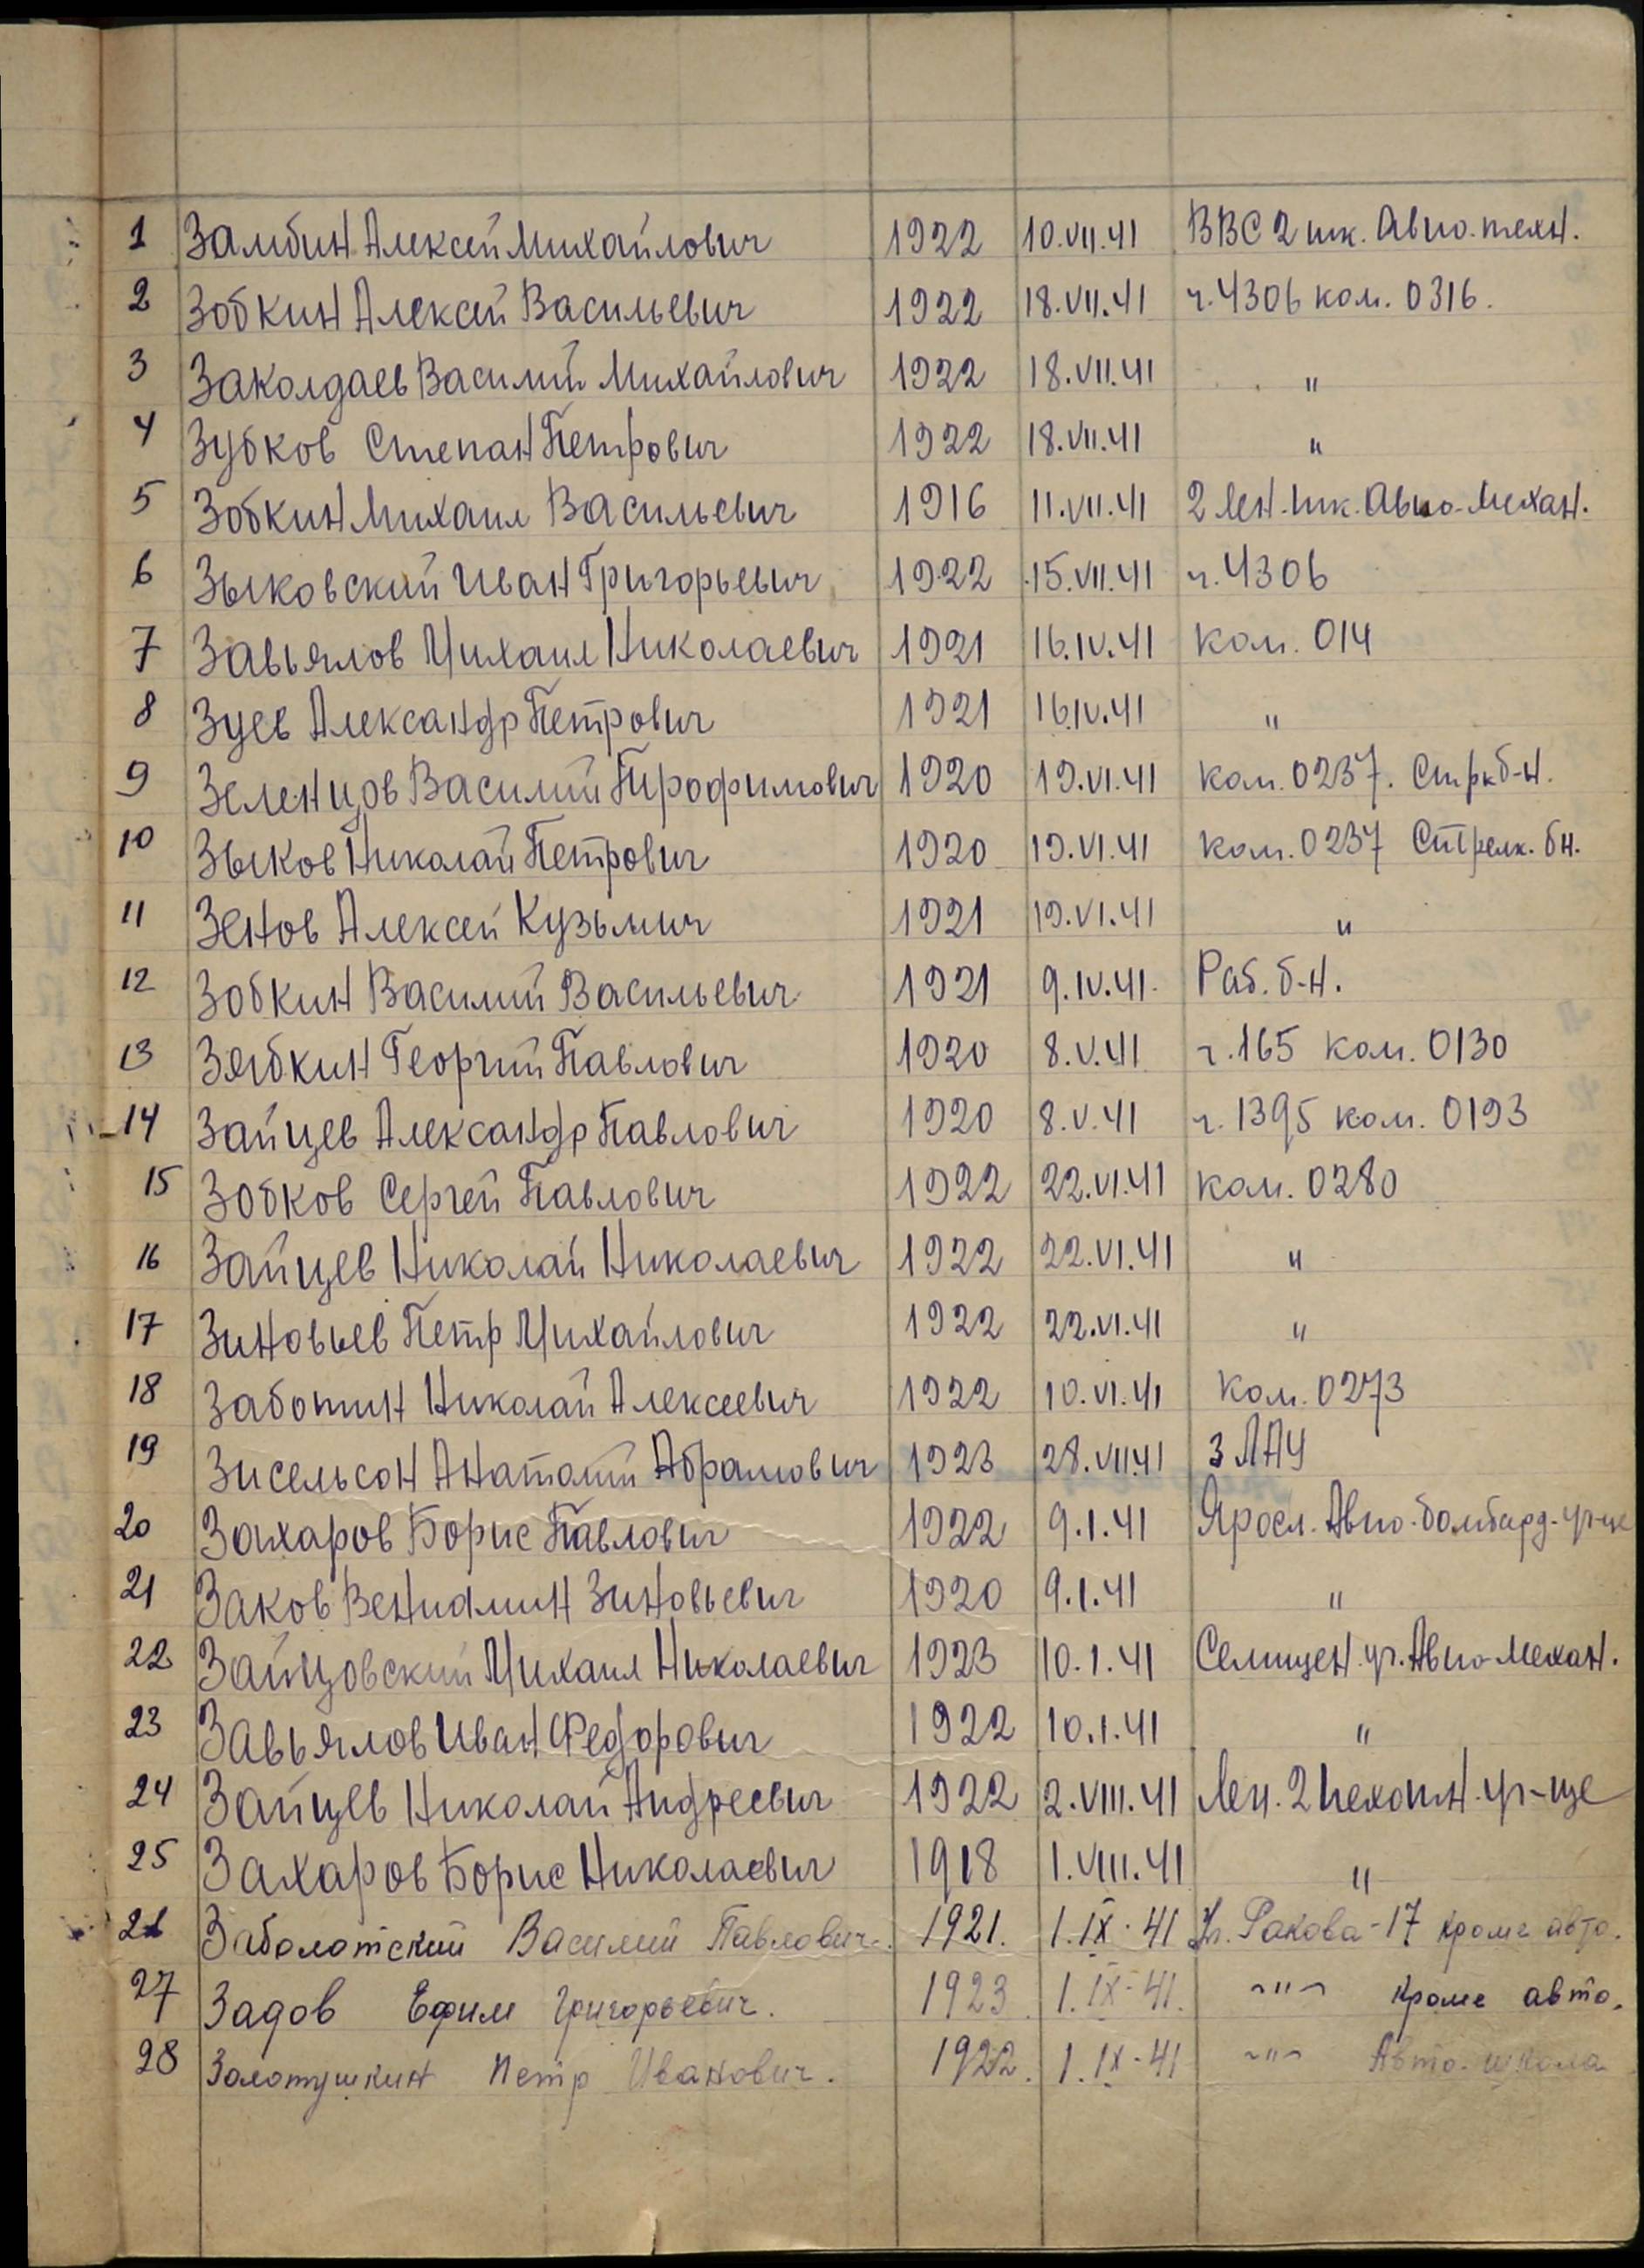 1 Замбин Алексей Михайлович 1922 10.VII.41 ВВС 2 шк. Авио. техн.
2 Зобкин Алексей Васильевич 1922 18.VII.41 ч. 4306 ком. 0316.
3 Заколдаев Василий Михайлович 1922 18.VII.41 "
4 Зубков Степан Петрович 1922 18.VII.41 "
5 Зобкин Михаил Васильевич 1916 11.VII.41 2 Лен. шк. Авио-Механ.
6 Зыковский Иван Григорьевич 1922 15.VII.41 ч. 4306
7 Завьялов Михаил Николаевич 1921 16.IV.41 ком. 014
8 Зуев Александр Петрович 1921 16.IV.41 "
9 Зеленцов Василий Трофимович 1920 19.VI.41 ком. 0237. Стрк б-н.
10 Зыков Николай Петрович 1920 19.VI.41 ком. 0237 Стрелк. бн.
11 Зенов Алексей Кузьмич 1921 19.VI.41 "
12 Зобкин Василий Васильевич 1921 9.IV.41. Раб. б-н.
13 Зябкин Георгий Павлович 1920 8.V.41 ч. 165 ком. 0130
14 Зайцев Александр Павлович 1920 8.V.41 ч. 1395 ком. 0193
15 Зобков Сергей Павлович 1922 22.VI.41 ком. 0280
16 Зайцев Николай Николаевич 1922 22.VI.41 "
17 Зиновьев Петр Михайлович 1922 22.VI.41 "
18 Заботин Николай Алексеевич 1922 10.VI.41 ком. 0273
19 Зисельсон Анатолий Абрамович 1923 28.VII.41 3 ЛАУ
20 Захаров Борис Павлович 1922 9.I.41 Яросл. Авио-бомбард-уч-ще
21 Заков Вениамин Зиновьевич 1920 9.I.41 "
22 Зайцовский Михаил Николаевич 1923 10.I.41 Селищен. уч. Авио-Механ.
23 Завьялов Иван Федорович 1922 10.I.41 "
24 Зайцев Николай Андреевич 1922 2.VIII.41 Лен. 2 Пехотн. уч-ще
25 Захаров Борис Николаевич 1918 1.VIII.41 "
26 Заболотский Василий Павлович. 1921. 1.IX.41 Ул. Ракова-17 кроме авто.
27 Задов Ефим Григорьевич. 1923 1.IX-41. -"- кроме авто.
28 Золотушкин Петр Иванович. 1922. 1.IX-41 -"- Авто-школа